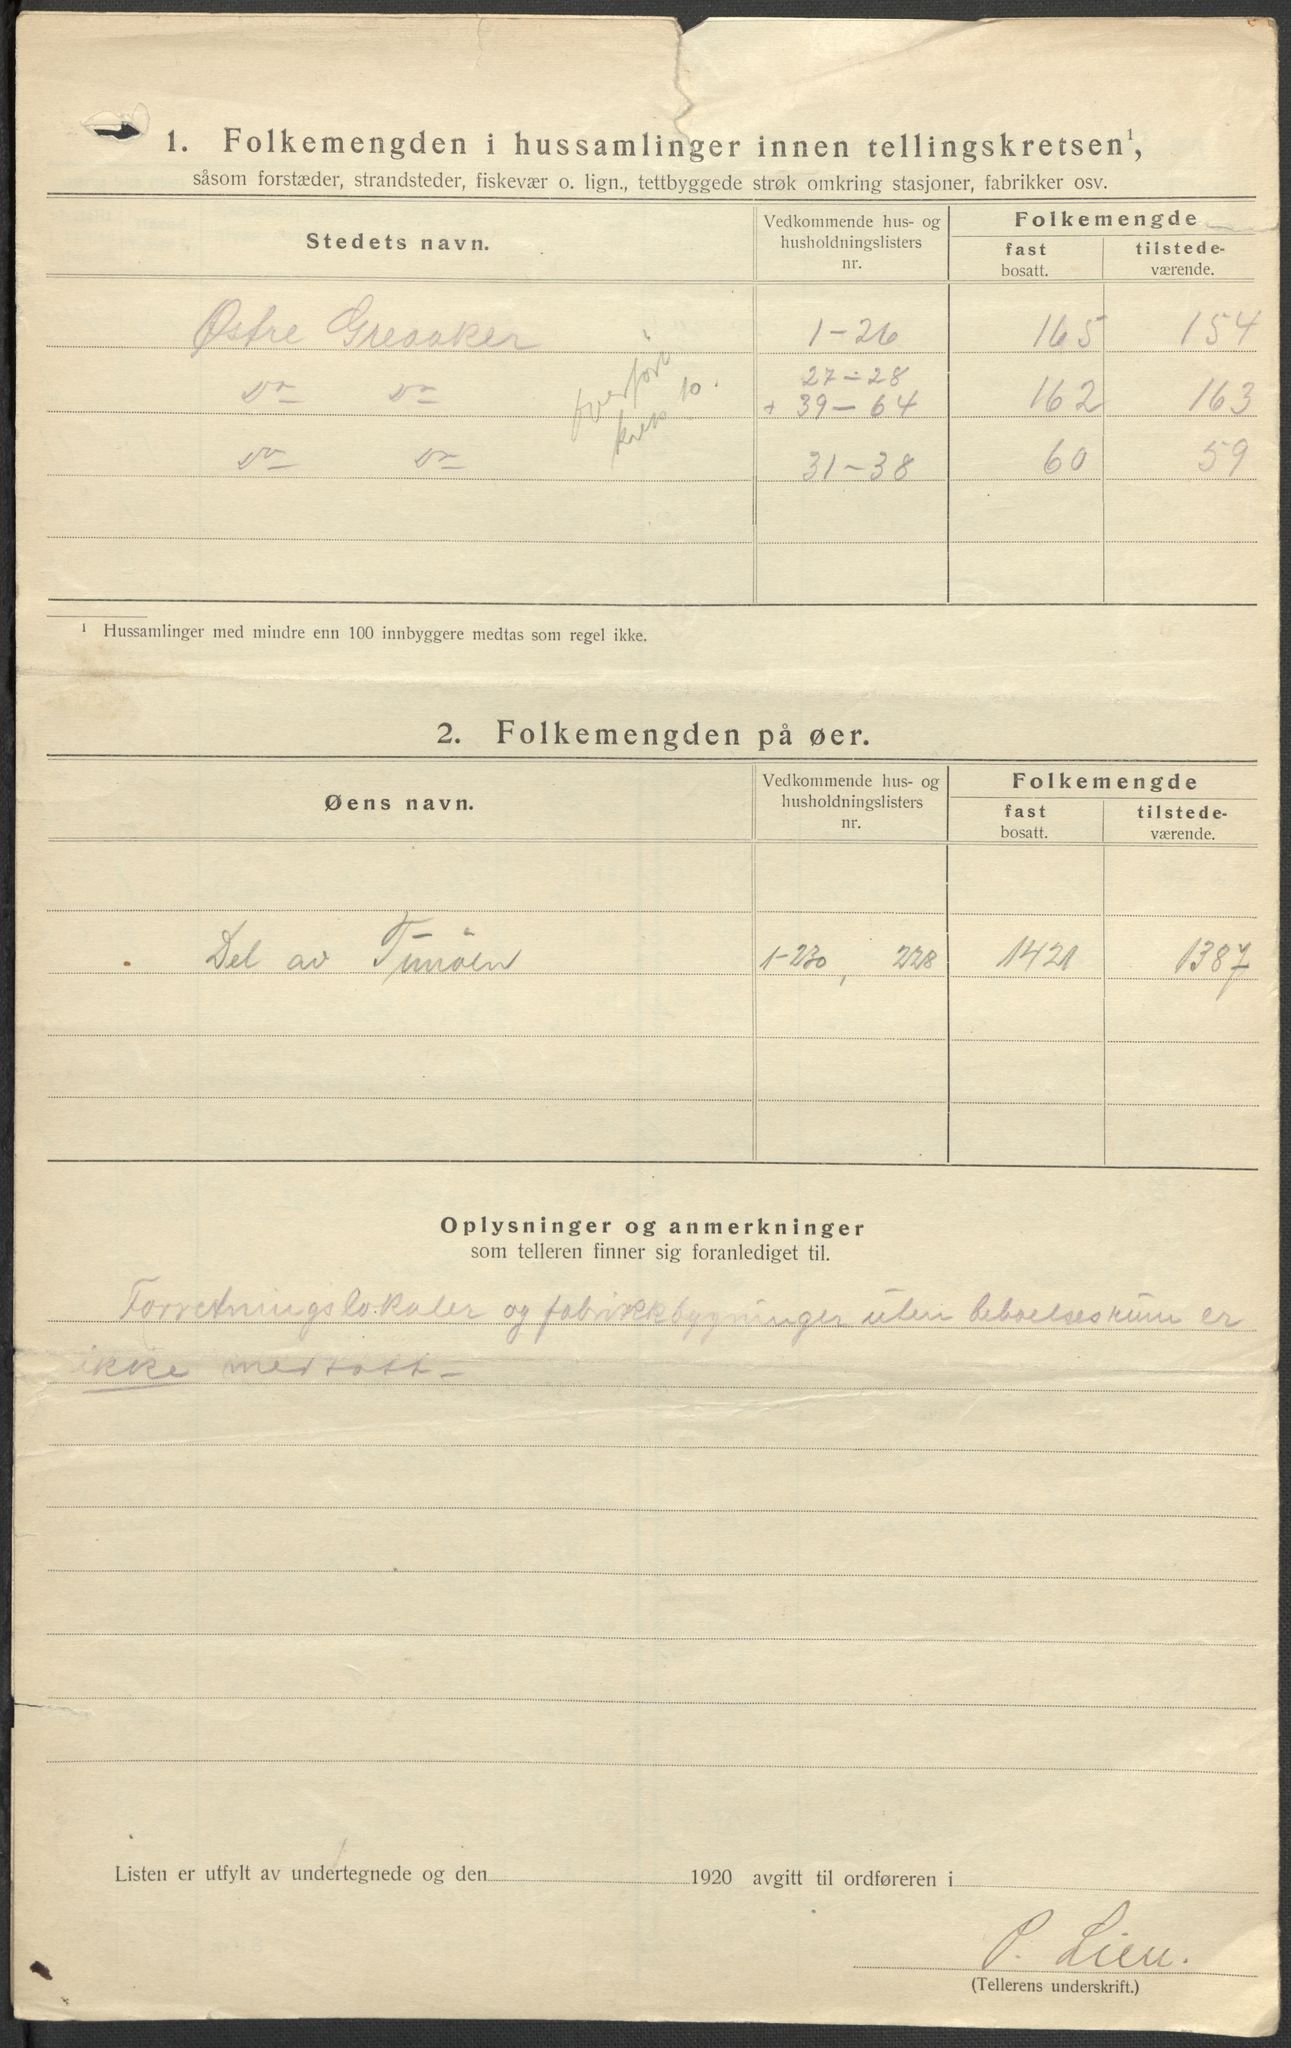 1. Folkemengden i hussamlinger innen tellingskretsen¹,
såsom forstæder, strandsteder, fiskevær o. lign., tettbyggede strøk omkring stasjoner, fabrikker osv.
Stedets navn.
Vedkommende hus- og husholdningslisters nr.
Folkemengde
fast bosatt.
tilstede-værende.
Østre Greaaker 1-26 165 154
Do Do 27-28 + 39-64 162 163
overført krets 10.
Do Do 31-38 60 59
¹ Hussamlinger med mindre enn 100 innbyggere medtas som regel ikke.
2. Folkemengden på øer.
Øens navn.
Vedkommende hus- og husholdningslisters nr.
Folkemengde
fast bosatt.
tilstede-værende.
Del av Tunöen 1-230, 228 1421 1387
Oplysninger og anmerkninger
som telleren finner sig foranlediget til.
Forretningslokaler og fabrikkbygninger uten beboelsesrum er
ikke medtatt-
Listen er utfylt av undertegnede og den 1920 avgitt til ordføreren i
P. Lien.
(Tellerens underskrift.)